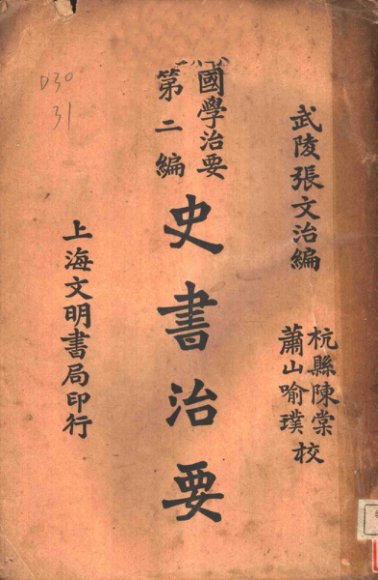 武陵張文治編
杭縣陳棠
蕭山喻璞
校
國學治要
第二編
史書治要
上海文明書局印行
D30
31